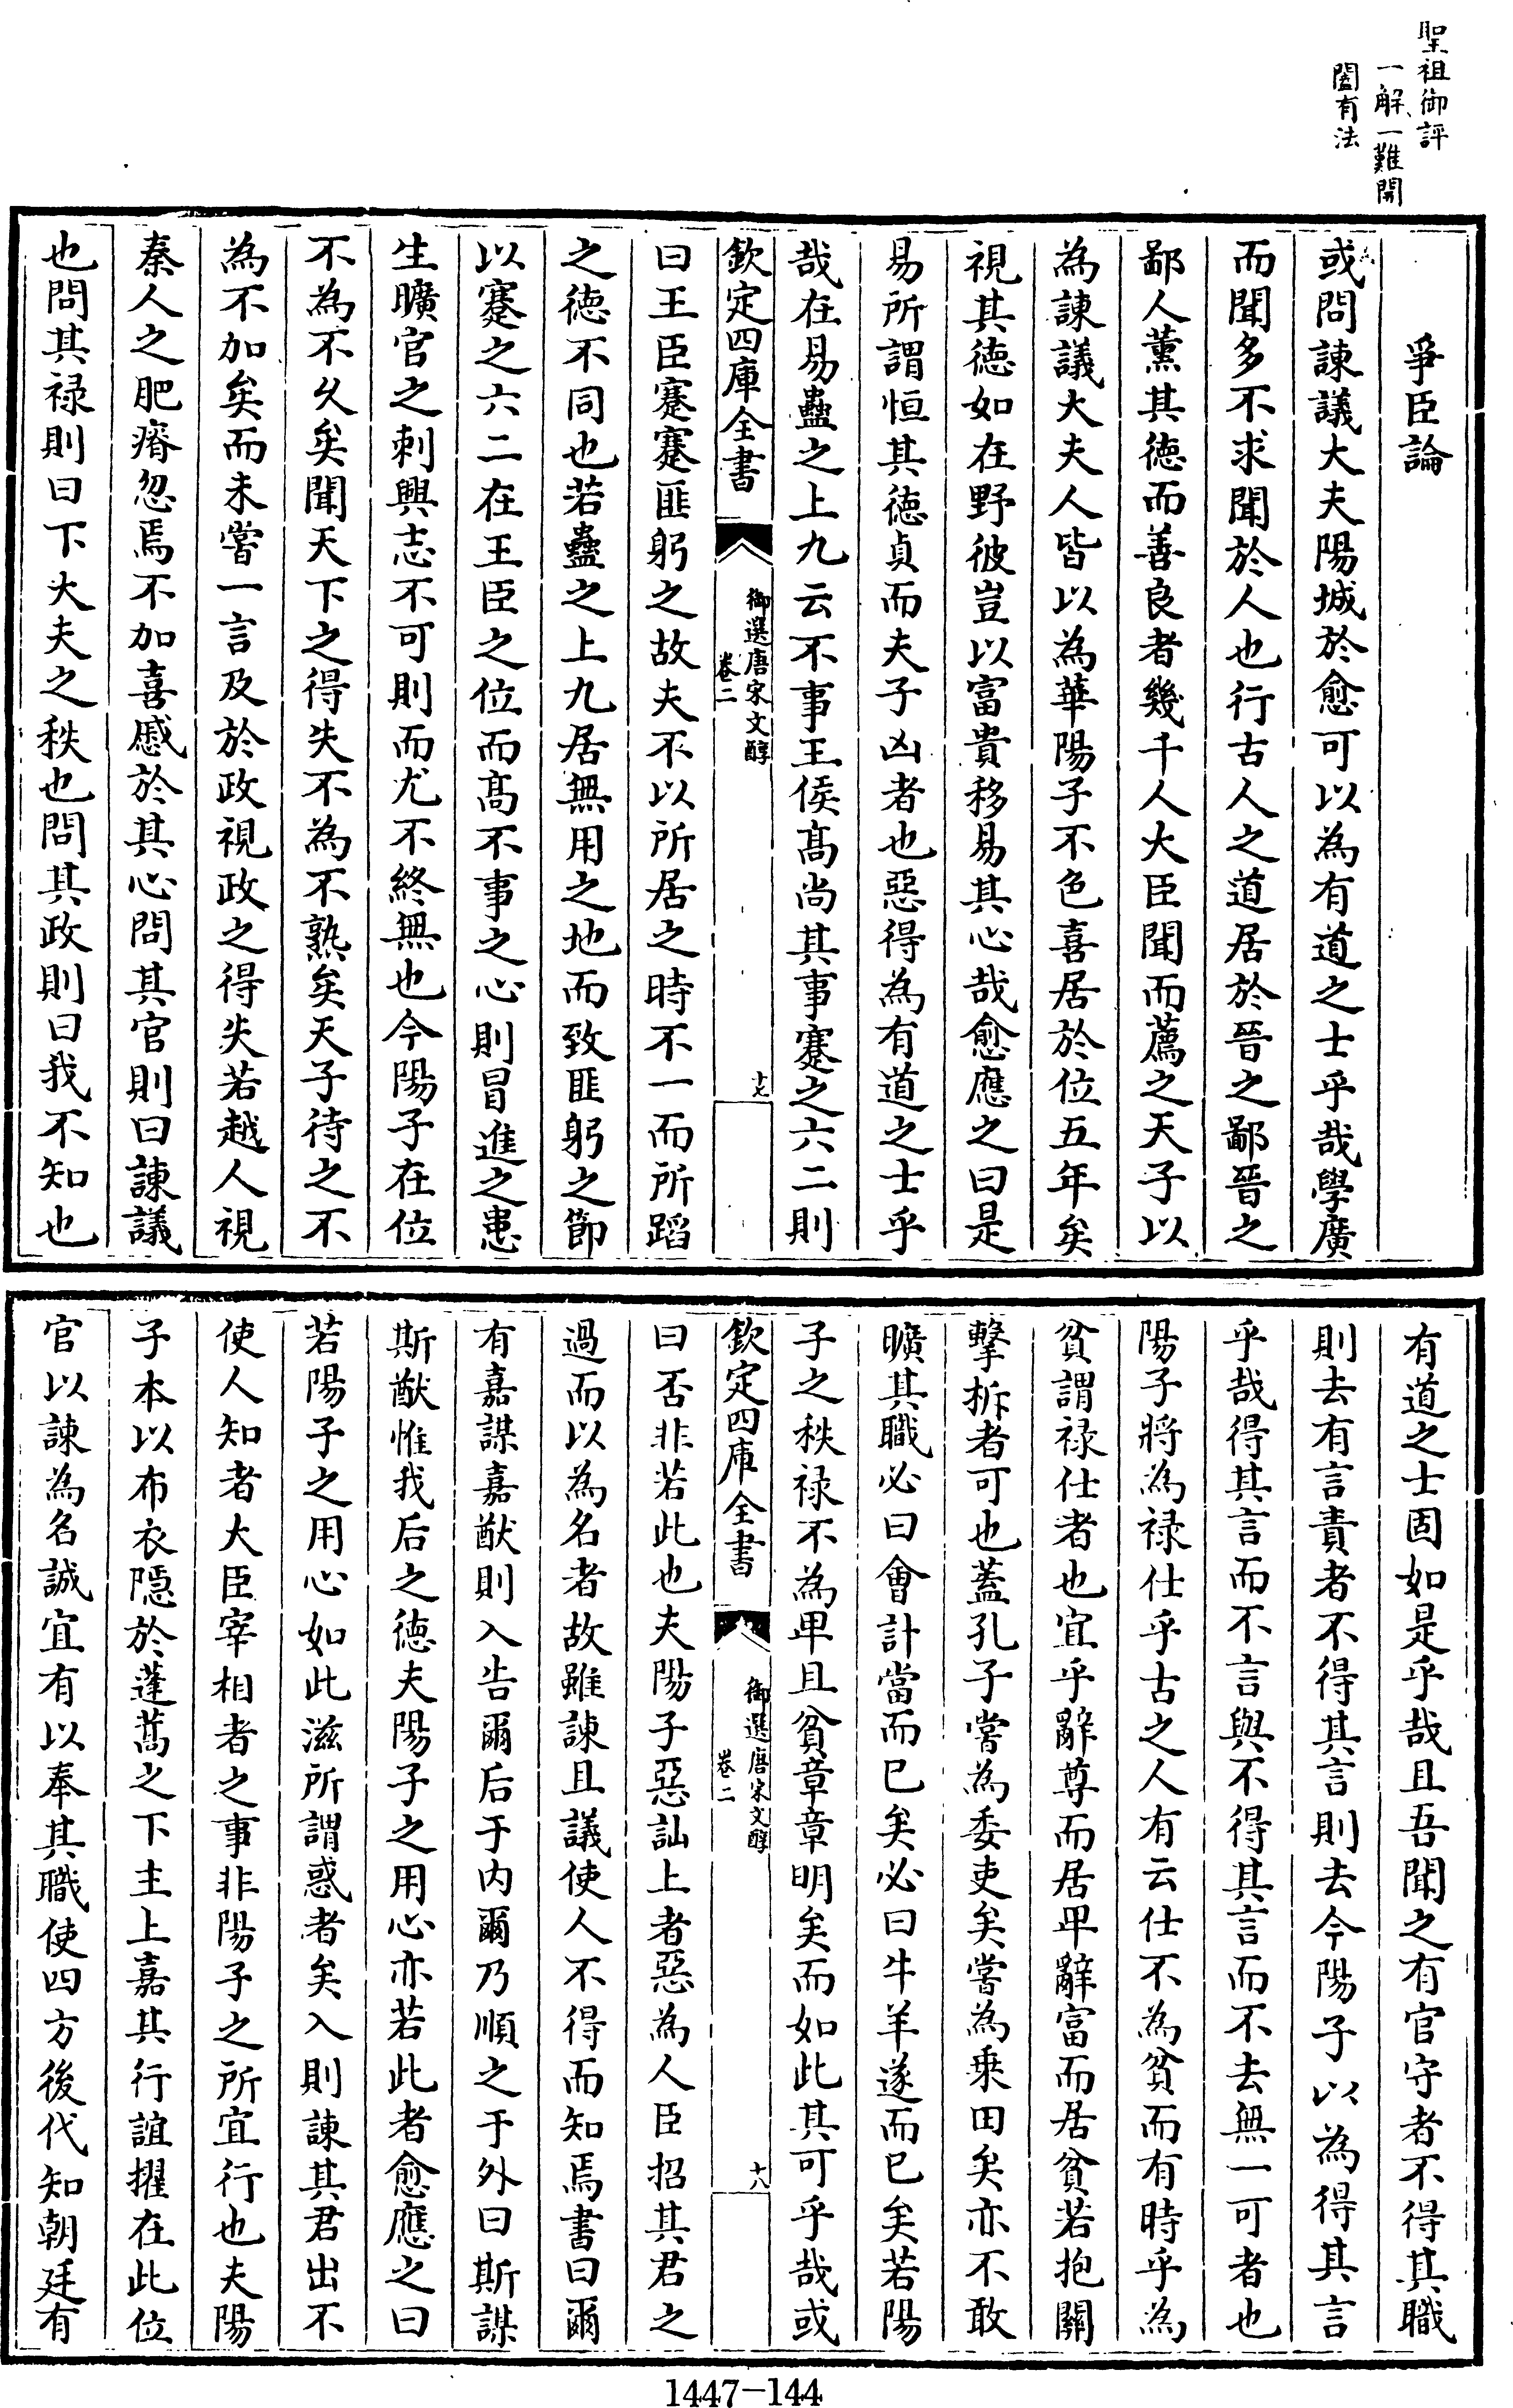 聖祖御評
一解一難開
闔有法
爭臣論
或問諫議大夫陽城於愈可以為有道之士乎哉學廣
而聞多不求聞於人也行古人之道居於晉之鄙晉之
鄙人薰其徳而善良者幾千人大臣聞而薦之天子以
為諫議大夫人皆以為華陽子不色喜居於位五年矣
視其徳如在野彼豈以富貴移易其心哉愈應之曰是
易所謂恒其徳貞而夫子凶者也惡得為有道之士乎
哉在易蠱之上九云不事王侯髙尚其事蹇之六二則
欽定四庫全書
御選唐宋文醇
卷二
十七
曰王臣蹇蹇匪躬之故夫不以所居之時不一而所蹈
之徳不同也若蠱之上九居無用之地而致匪躬之節
以蹇之六二在王臣之位而髙不事之心則冒進之患
生曠官之刺興志不可則而尤不終無也今陽子在位
不為不久矣聞天下之得失不為不熟矣天子待之不
為不加矣而未嘗一言及於政視政之得失若越人視
秦人之肥瘠忽焉不加喜慼於其心問其官則曰諫議
也問其禄則曰下大夫之秩也問其政則曰我不知也
有道之士固如是乎哉且吾聞之有官守者不得其職
則去有言責者不得其言則去今陽子以為得其言
乎哉得其言而不言與不得其言而不去無一可者也
陽子將為禄仕乎古之人有云仕不為貧而有時乎為
貧謂禄仕者也宜乎辭尊而居卑辭富而居貧若抱關
擊柝者可也蓋孔子嘗為委吏矣嘗為乗田矣亦不敢
曠其職必曰會計當而已矣必曰牛羊遂而已矣若陽
子之秩禄不為卑且貧章章明矣而如此其可乎哉或
欽定四庫全書
御選唐宋文醇
卷二
十八
曰否非若此也夫陽子惡訕上者惡為人臣招其君之
過而以為名者故雖諫且議使人不得而知焉書曰爾
有嘉謀嘉猷則入告爾后于内爾乃順之于外曰斯謀
斯猷惟我后之徳夫陽子之用心亦若此者愈應之曰
若陽子之用心如此滋所謂惑者矣入則諫其君出不
使人知者大臣宰相者之事非陽子之所宜行也夫陽
子本以布衣隱於蓬蒿之下主上嘉其行誼擢在此位
官以諫為名誠宜有以奉其職使四方後代知朝廷有
1447-144